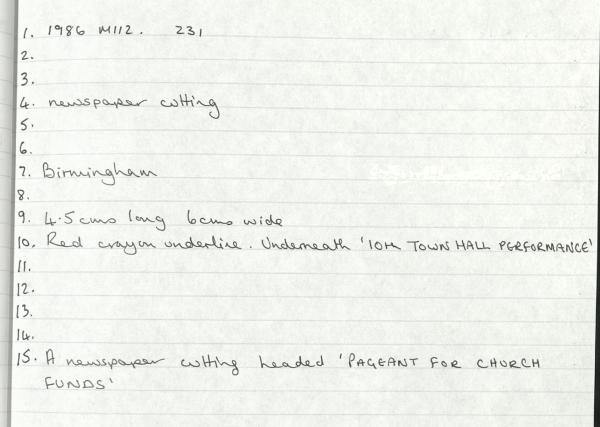 1. 1986 M112. 231
2.
3.
4. newspaper cutting
5.
6.
7. Birmingham
8.
9. 4.5cms long 6cms wide
10. Red crayon underline. Underneath '10th TOWN HALL PERFORMANCE'
11.
12.
13.
14.
15. A newspaper cutting headed 'PAGEANT FOR CHURCH
FUNDS'